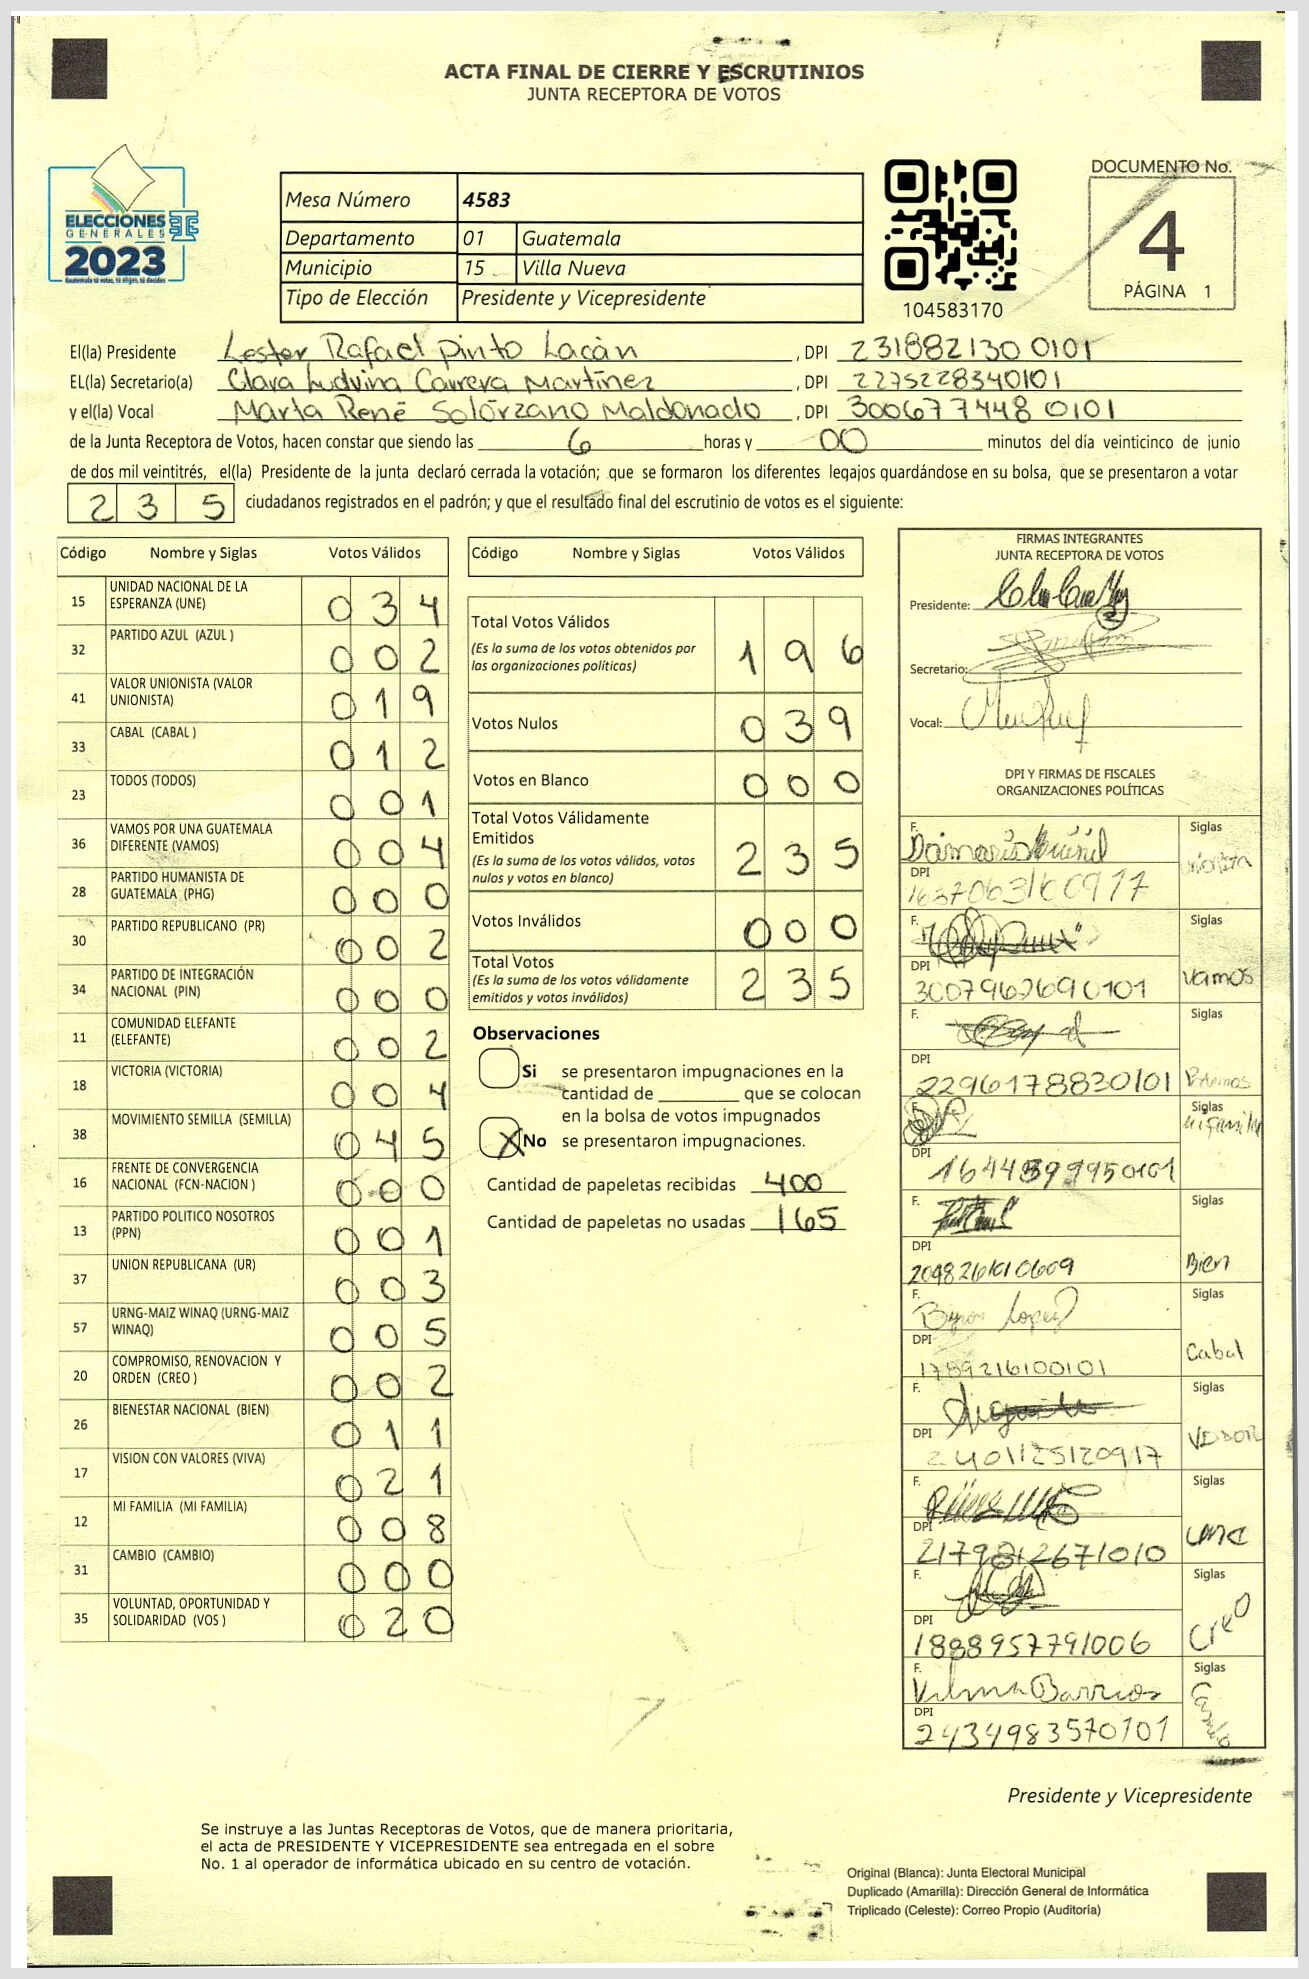 ACTA FINAL DE CIERRE Y ESCRUTINIOS
JUNTA RECEPTORA DE VOTOS
ELECCIONES
GENERALES
2023
Guatemala tú votas, tú eliges, tú decides
Mesa Número 4583
Departamento 01 Guatemala
Municipio 15 Villa Nueva
Tipo de Elección Presidente y Vicepresidente
104583170
DOCUMENTO No.
4
PÁGINA 1
El(la) Presidente Lester Rafael Pinto Lacán, DPI 231882130 0101
EL(la) Secretario(a) Clara Ludvina Carrera Martínez, DPI 2275228340101
y el(la) Vocal Marta René Solórzano Maldonado, DPI 300677448 0101
de la Junta Receptora de Votos, hacen constar que siendo las 6 horas y 00 minutos del día veinticinco de junio
de dos mil veintitrés, el(la) Presidente de la junta declaró cerrada la votación; que se formaron los diferentes legajos guardándose en su bolsa, que se presentaron a votar
235 ciudadanos registrados en el padrón; y que el resultado final del escrutinio de votos es el siguiente:
Código Nombre y Siglas Votos Válidos
15 UNIDAD NACIONAL DE LA ESPERANZA (UNE) 034
32 PARTIDO AZUL (AZUL ) 002
41 VALOR UNIONISTA (VALOR UNIONISTA) 019
33 CABAL (CABAL ) 012
23 TODOS (TODOS) 001
36 VAMOS POR UNA GUATEMALA DIFERENTE (VAMOS) 004
28 PARTIDO HUMANISTA DE GUATEMALA (PHG) 000
30 PARTIDO REPUBLICANO (PR) 002
34 PARTIDO DE INTEGRACIÓN NACIONAL (PIN) 000
11 COMUNIDAD ELEFANTE (ELEFANTE) 002
18 VICTORIA (VICTORIA) 004
38 MOVIMIENTO SEMILLA (SEMILLA) 045
16 FRENTE DE CONVERGENCIA NACIONAL (FCN-NACION ) 000
13 PARTIDO POLITICO NOSOTROS (PPN) 001
37 UNION REPUBLICANA (UR) 003
57 URNG-MAIZ WINAQ (URNG-MAIZ WINAQ) 005
20 COMPROMISO, RENOVACION Y ORDEN (CREO ) 002
26 BIENESTAR NACIONAL (BIEN) 011
17 VISION CON VALORES (VIVA) 021
12 MI FAMILIA (MI FAMILIA) 008
31 CAMBIO (CAMBIO) 000
35 VOLUNTAD, OPORTUNIDAD Y SOLIDARIDAD (VOS ) 020
Código Nombre y Siglas Votos Válidos
Total Votos Válidos 196
(Es la suma de los votos obtenidos por
las organizaciones políticas)
Votos Nulos 039
Votos en Blanco 000
Total Votos Válidamente
Emitidos 235
(Es la suma de los votos válidos, votos
nulos y votos en blanco)
Votos Inválidos 000
Total Votos 235
(Es la suma de los votos válidamente
emitidos y votos inválidos)
Observaciones
Si se presentaron impugnaciones en la
cantidad de ________ que se colocan
en la bolsa de votos impugnados
X No se presentaron impugnaciones.
Cantidad de papeletas recibidas 400
Cantidad de papeletas no usadas 165
FIRMAS INTEGRANTES
JUNTA RECEPTORA DE VOTOS
Presidente:
Secretario:
Vocal:
DPI Y FIRMAS DE FISCALES
ORGANIZACIONES POLÍTICAS
F. Siglas
DPI 1637063160917 Unionista
F. Siglas
DPI 3007962690101 Vamos
F. Siglas
DPI 2296178830101
F. Siglas
Mi familia
DPI
F. Siglas
DPI Bien
F. Byron Lopez Siglas
DPI 1789216100101 Cabal
F. Siglas
DPI 2401125120917
F. Siglas
DPI 2179812671010
F. Siglas
DPI 1888957791006 Creo
F. Vilma Barrios Siglas
DPI 2434983570101 Cambio
Presidente y Vicepresidente
Se instruye a las Juntas Receptoras de Votos, que de manera prioritaria,
el acta de PRESIDENTE Y VICEPRESIDENTE sea entregada en el sobre
No. 1 al operador de informática ubicado en su centro de votación.
Original (Blanca): Junta Electoral Municipal
Duplicado (Amarilla): Dirección General de Informática
Triplicado (Celeste): Correo Propio (Auditoría)